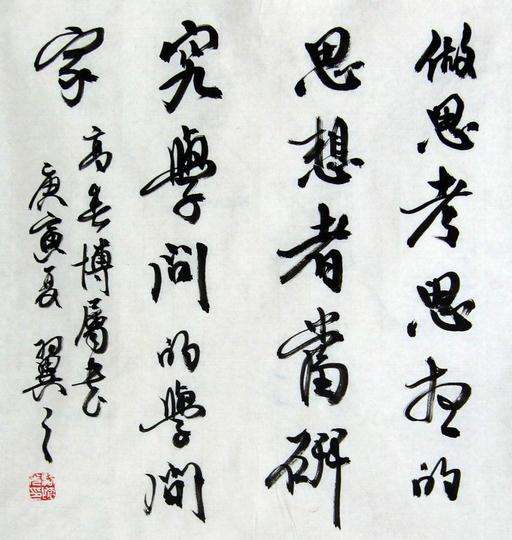 做思考思想的
思想者當研
究學問的學問
家
高春博屬書
庚寅夏翼之